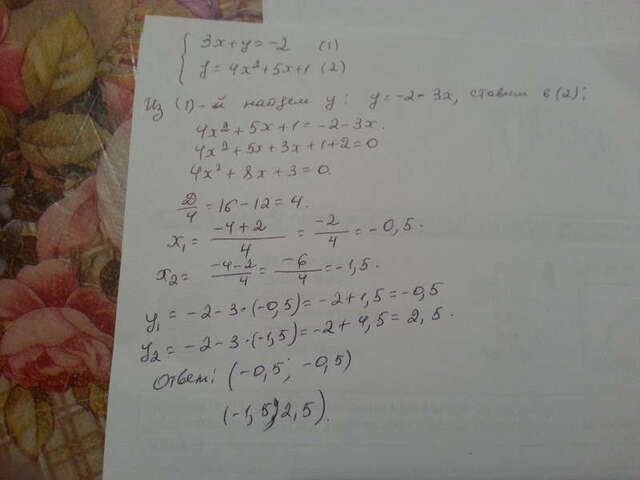 { 3x+y=-2 (1)
y=4x²+5x+1 (2)
Из (1)-й найдем y: y=-2-3x, ставим в (2):
4x²+5x+1=-2-3x.
4x²+5x+3x+1+2=0
4x²+8x+3=0.
D/4=16-12=4.
x₁= (-4+2)/4 = -2/4 = -0,5.
x₂= (-4-2)/4 = -6/4 = -1,5.
y₁ = -2-3·(-0,5)=-2+1,5=-0,5
y₂= -2-3·(-1,5)=-2+4,5=2,5.
Ответ: (-0,5; -0,5)
(-1,5; 2,5).